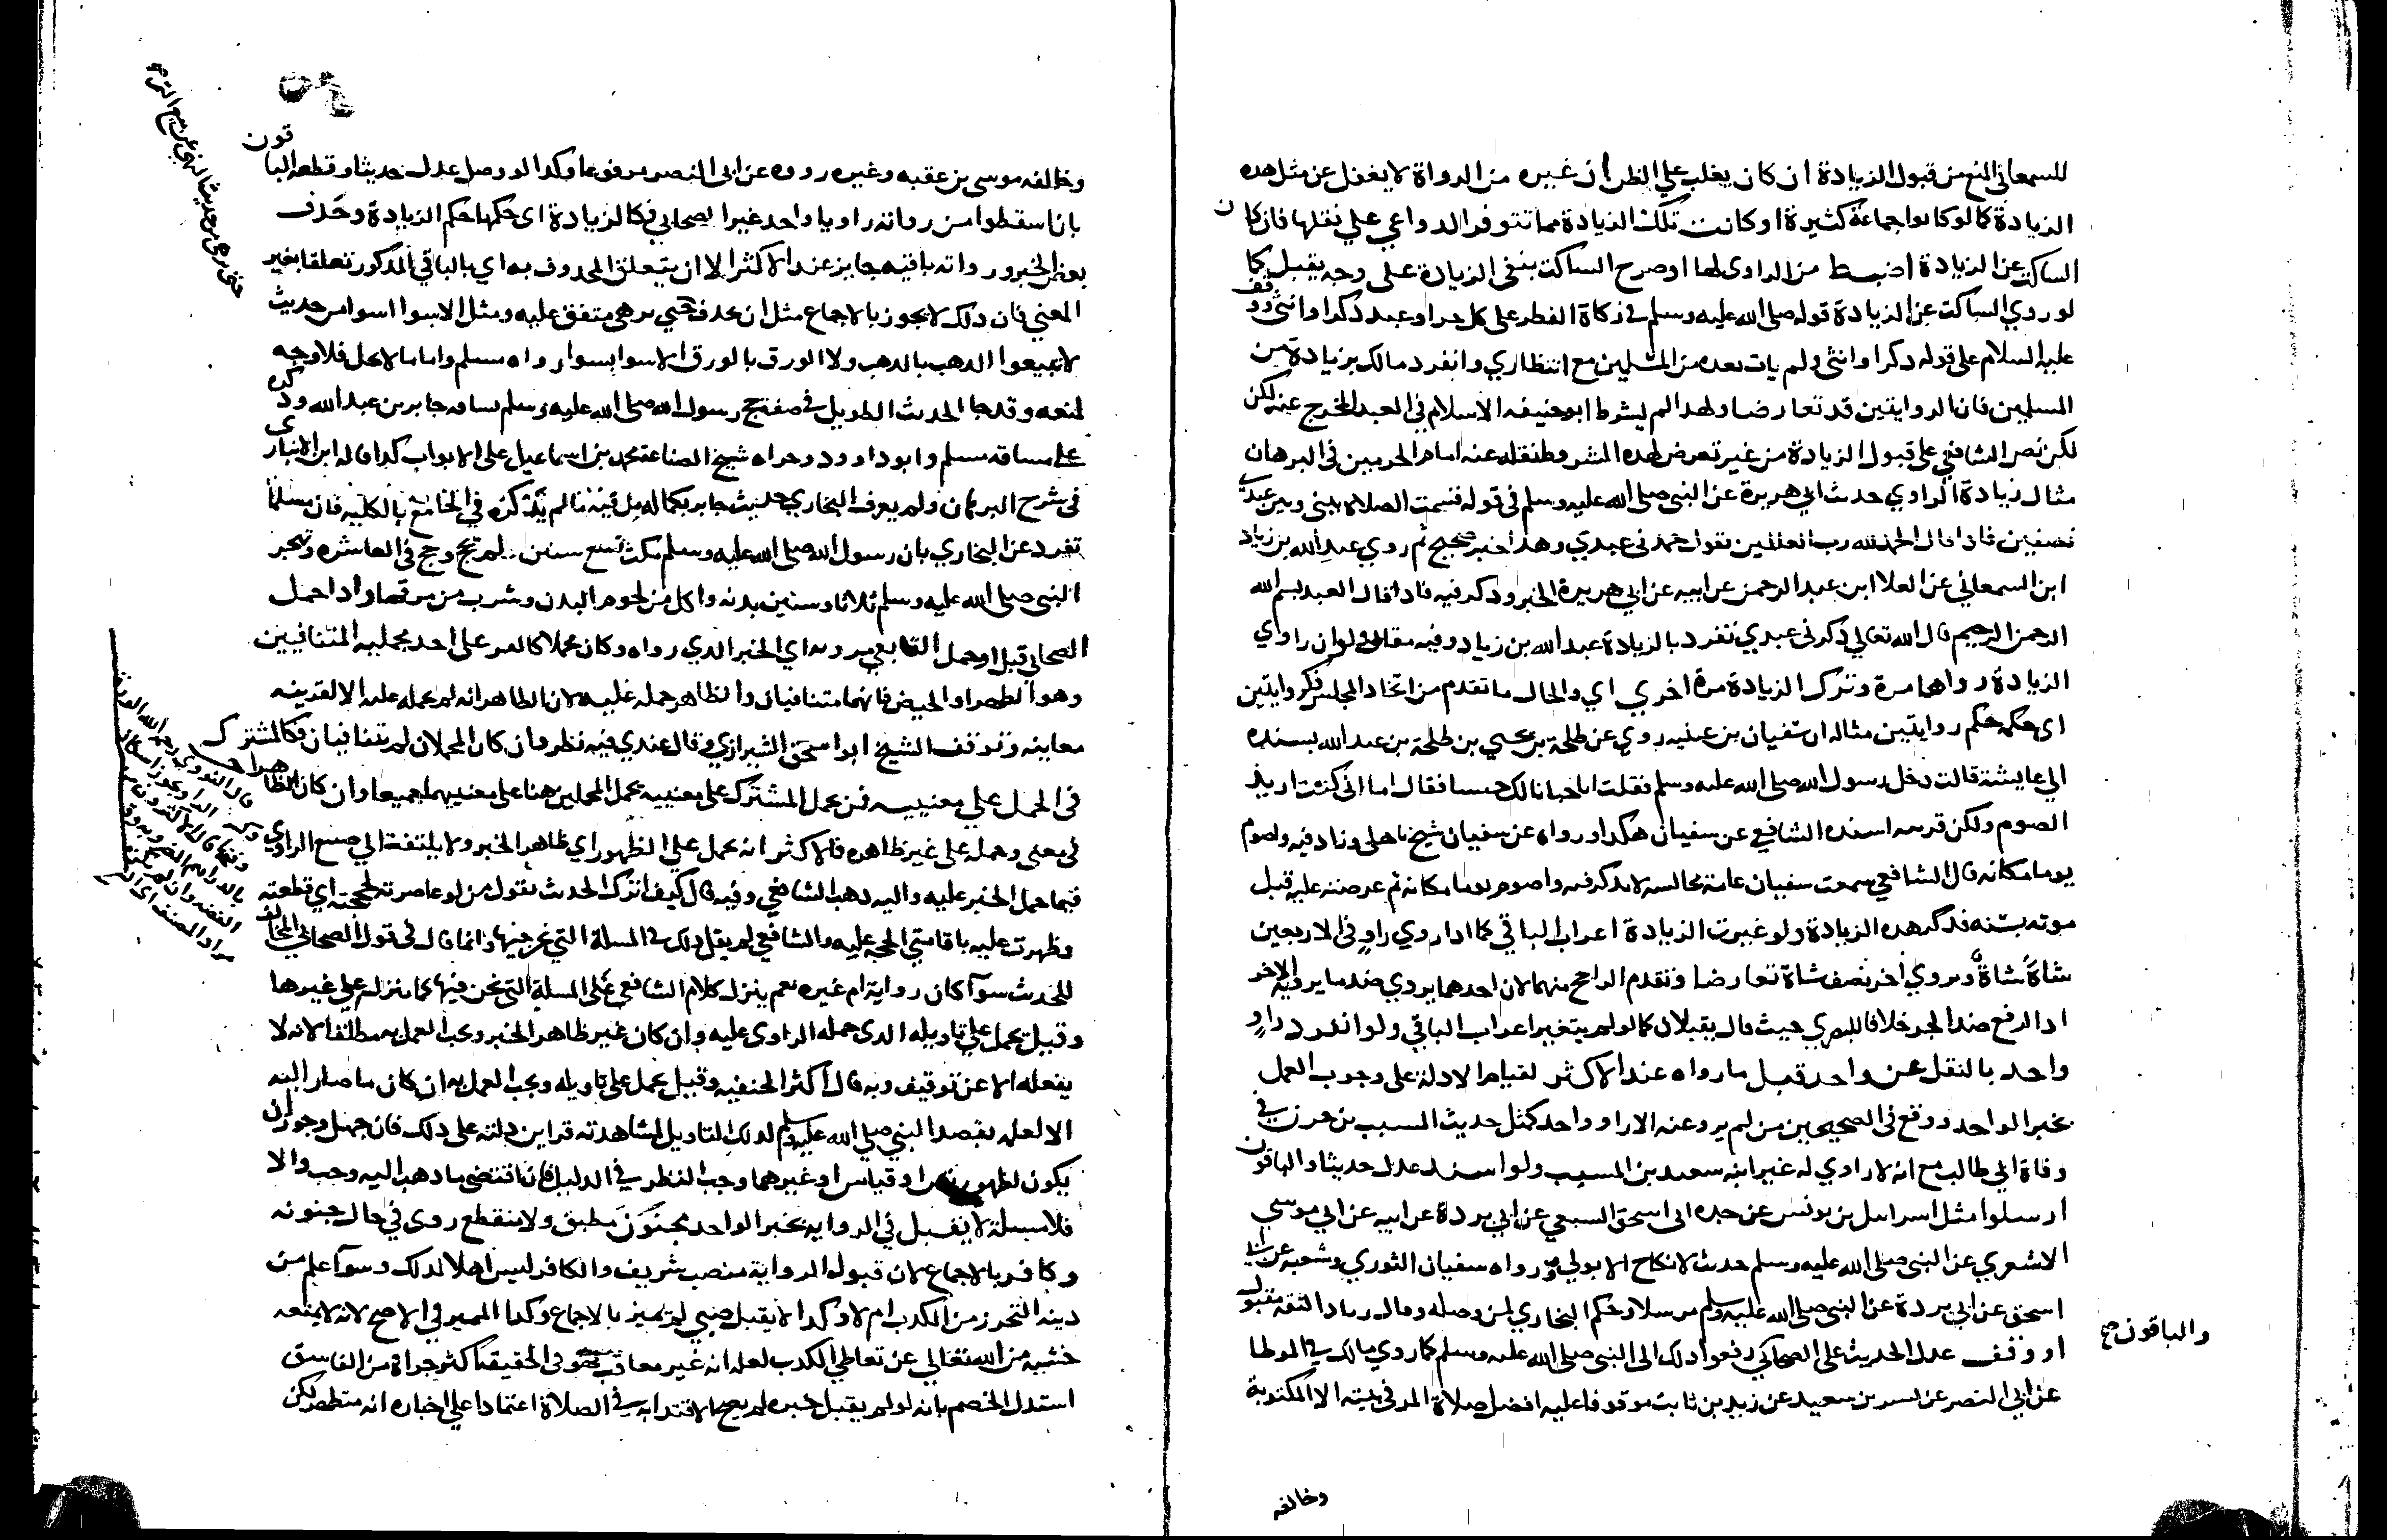 للسمعاني المنع من قبول الزيادة ان كان يغلب علي الظن ان غيره من الرواة لا يغفل عن مثل هده
الزيادة كما لو كانوا جماعة كثيرة او كانت تلك الزيادة مما تتوفر الدواعي علي نقلها فان كان
الساكت عن الزيادة اضبط من الراوى لها او صرح الساكت بنفى الزيادة على وجه يقبل كما
لو روي الساكت عن الزيادة قوله صلى الله عليه وسلم في زكاة الفطر على كل حر او عبد دكرا وانثى ووقف
عليه السلام على قوله دكرا وانثى ولم يات بعده من المسلمين مع انتظاري وانفرد مالك بزيادة من
المسلمين فان الروايتين قد تعارضا ولهدا لم يشرط ابو حنيفه الاسلام في العبد المخرج عنه لكن
لكن نص الشافعي على قبول الزيادة من غير تعرض لهده الشروط نقله عنه امام الحرمين في البرهان
مثال زيادة الراوي حدث ابي هريرة عن النبى صلى الله عليه وسلم فى قوله قسمت الصلاة بينى وبين عبدي
نصفين فادا قال الحمد لله رب العالمين يقول حمدنى عبدي وهدا خبر صحيح ثم روي عبد الله بن زياد
ابن السمعاني عن العلا ابن عبد الرحمن عن ابيه عن ابي هريرة الخبر ودكر فيه فادا قال العبد بسم الله
الرحمن الرحيم قال الله تعالي دكرنى عبدي تفرد بالزيادة عبد الله بن زياد وفيه مقال ولو ان راوي
الزيادة رواها مرة وترك الزيادة مرة اخري اي والحال ما تقدم من اتحاد المجلس فكروايتين
اى حكمه حكم روايتين مثاله ان سفيان بن عيينه روي عن طلحة بن يحيي بن طلحة بن عبد الله بسنده
الي عايشة قالت دخل رسول الله صلى الله عليه وسلم فقلت انا خبانا لك حيسا فقال اما انى كنت اريد
الصوم ولكن قربيه اسنده الشافعي عن سفيان هكدا ورواه عن سفيان شيخ باهلى وزاد فيه واصوم
يوما مكانه قال الشافعي سمعت سفيان عامة مجالسه لا يدكر فيه واصوم يوما مكانه ثم عرضته عليه قبل
موته بسنه فدكر هده الزيادة ولو غيرت الزيادة اعراب الباقي كما ادا روي راو فى الاربعين
شاة شاة وروي اخر نصف شاة تعارضا وتقدم الراجح منهما لان احدهما يروي ضد ما يرويه الاخر
اد الرفع ضد الجر خلافا للبصري حيث قال يقبلان كما لو لم يتغير اعراب الباقي ولو انفرد راو
واحد بالنقل عن واحد قبل ما رواه عند الاكثر لقيام الادلة على وجوب العمل
بخبر الواحد ووقع فى الصحيحين من لم يرو عنه الا راو واحد كمثل حديث المسيب بن حزن في
وفاة ابي طالب مع انه لا راوي له غير ابنه سعيد بن المسيب ولو اسند عدل حديثا والباقون
ارسلوا مثل اسرايل بن يونس عن جده ابى اسحق السبيعي عن ابي بردة عن ابيه عن ابي موسي
الاشعري عن النبى صلى الله عليه وسلم حدث لا نكاح الا بولي ورواه سفيان الثوري وشعبه عن ابي
اسحق عن ابي بردة عن النبى صلى الله عليه وسلم مرسلا وحكم البخاري لمن وصله وقال زياد الثقة مقبوله
او وقف عدل الحديث على الصحابي رفعوا دلك الى النبى صلى الله عليه وسلم كما روي مالك في الموطا
عن ابي النصر عن بسر بن سعيد عن زيد بن ثابت موقوفا عليه افضل صلاة المر فى بيته الا المكتوبة
والباقون صح
وخالفه
وخالفه موسى بن عقبه وغيره رووه عن ابى النصر مرفوعا وكدا لو وصل عدل حديثا وقطعه الباقون
بان اسقطوا من رواته راويا واحد غير الصحابي فكالزيادة اى حكمها حكم الزيادة وحدف
بعض الخبر ورواته باقيه جايز عند الاكثر الا ان يتعلق المحدوف به اي بالباقي المدكور تعلقا بغير
المعني فان دلك لا يجوز بالاجماع مثل ان يحدف حتي تزهى متفق عليه ومثل الا سوا بسوا من حديث
لا تبيعوا الدهب بالدهب ولا الورق بالورق الا سوا بسوا رواه مسلم واما ما لا يخل فلا وجه
لمنعه وقد جا الحدث الطويل في صفة حج رسول الله صلى الله عليه وسلم بساقه جابر بن عبد الله ودكره
على مساقه مسلم وابو داوود وجزاه شيخ الصناعة محمد بن اسماعيل على الابواب كدا قاله ابن الانباري
فى شرح البرهان ولم يعرف البخاري حديث جابر بكماله بل فيه ما لم يدكره في الجامع بالكليه فان مسلما
تفرد عن البخاري بان رسول الله صلى الله عليه وسلم مكث تسع سنين لم يحج وحج في العاشره ونحر
النبى صلى الله عليه وسلم ثلاثا وستين بدنه واكل من لحوم البدن وشرب من مرقها وادا حمل
الصحابي قبل او حمل التابعي مرويه اي الخبر الدي رواه وكان محملا كالقر على احد محمليه المتنافيين
وهو الطهر او الحيض فانهما متنافيان والظاهر حمله عليه لان الظاهر انه لم يحمله عليه الا لقرينه
معاينه وتوقف الشيخ ابو اسحق الشيرازي وقال عندي فيه نظر وان كان المحملان لم يتنافيان فكالمشترك
فى الحمل علي معنييه فمن يحمل المشترك على معنييه يحمل المحملين هنا على معنييهما جميعا وان كان الظاهرا
فى معنى وحمله على غير ظاهره فالاكثر انه يحمل علي الظهور اي ظاهر الخبر ولا يلتفت الي صنع الراوي
فيما حمل الخبر عليه واليه دهب الشافعي وفيه قال كيف اترك الحدث بقول من لو عاصرته لحججته اي قطعته
وظهرت عليه باقامتي الحجه عليه والشافعي لم يقل دلك في المسلة التي نحن فيها وانما قال فى قول الصحابي المخالف
للحدث سوآ كان روايه ام غيره نعم ينزل كلام الشافعي على المسلة التى نحن فيها كما ينزل علي غيرها
وقيل يحمل علي تاويله الدى حمله الراوى عليه وان كان غير ظاهر الخبر ويجب العمل به مطلقا لانه لا
يفعله الا عن توقيف وبه قال اكثر الحنفيه وقيل يحمل على تاويله ويجب العمل به ان كان ما صار اليه
الا لعلمه بقصد النبي صلي الله عليه وسلم لدلك التاويل لمشاهدته قراين دلته على دلك فان جهل وجوز ان
يكون لظهور نص او قياس او غيرهما وجب النظر في الدليل فان اقتضى ما دهب اليه وجب والا
فلا مسلة لا يقبل في الروايه بخبر الواحد مجنون مطبق ولا منقطع روى في حال جنونه
وكافر بالاجماع لان قبول الرواية منصب شريف والكافر ليس اهلا لدلك وسوآ علم من
دينه التحرز من الكدب ام لا وكدا لا يقبل صبي لم يميز بالاجماع وكدا المميز في الاصح لانه لا يمنعه
خشيه من الله تعالي عن تعاطي الكدب لعلمه انه غير معاقب فهو فى الحقيقة اكثر جراة من الفاسق
استدل الخصم بانه لو لم يقبل خبره لم يصح الاقتدا به في الصلاة اعتمادا علي اخباره انه متطهر لكن